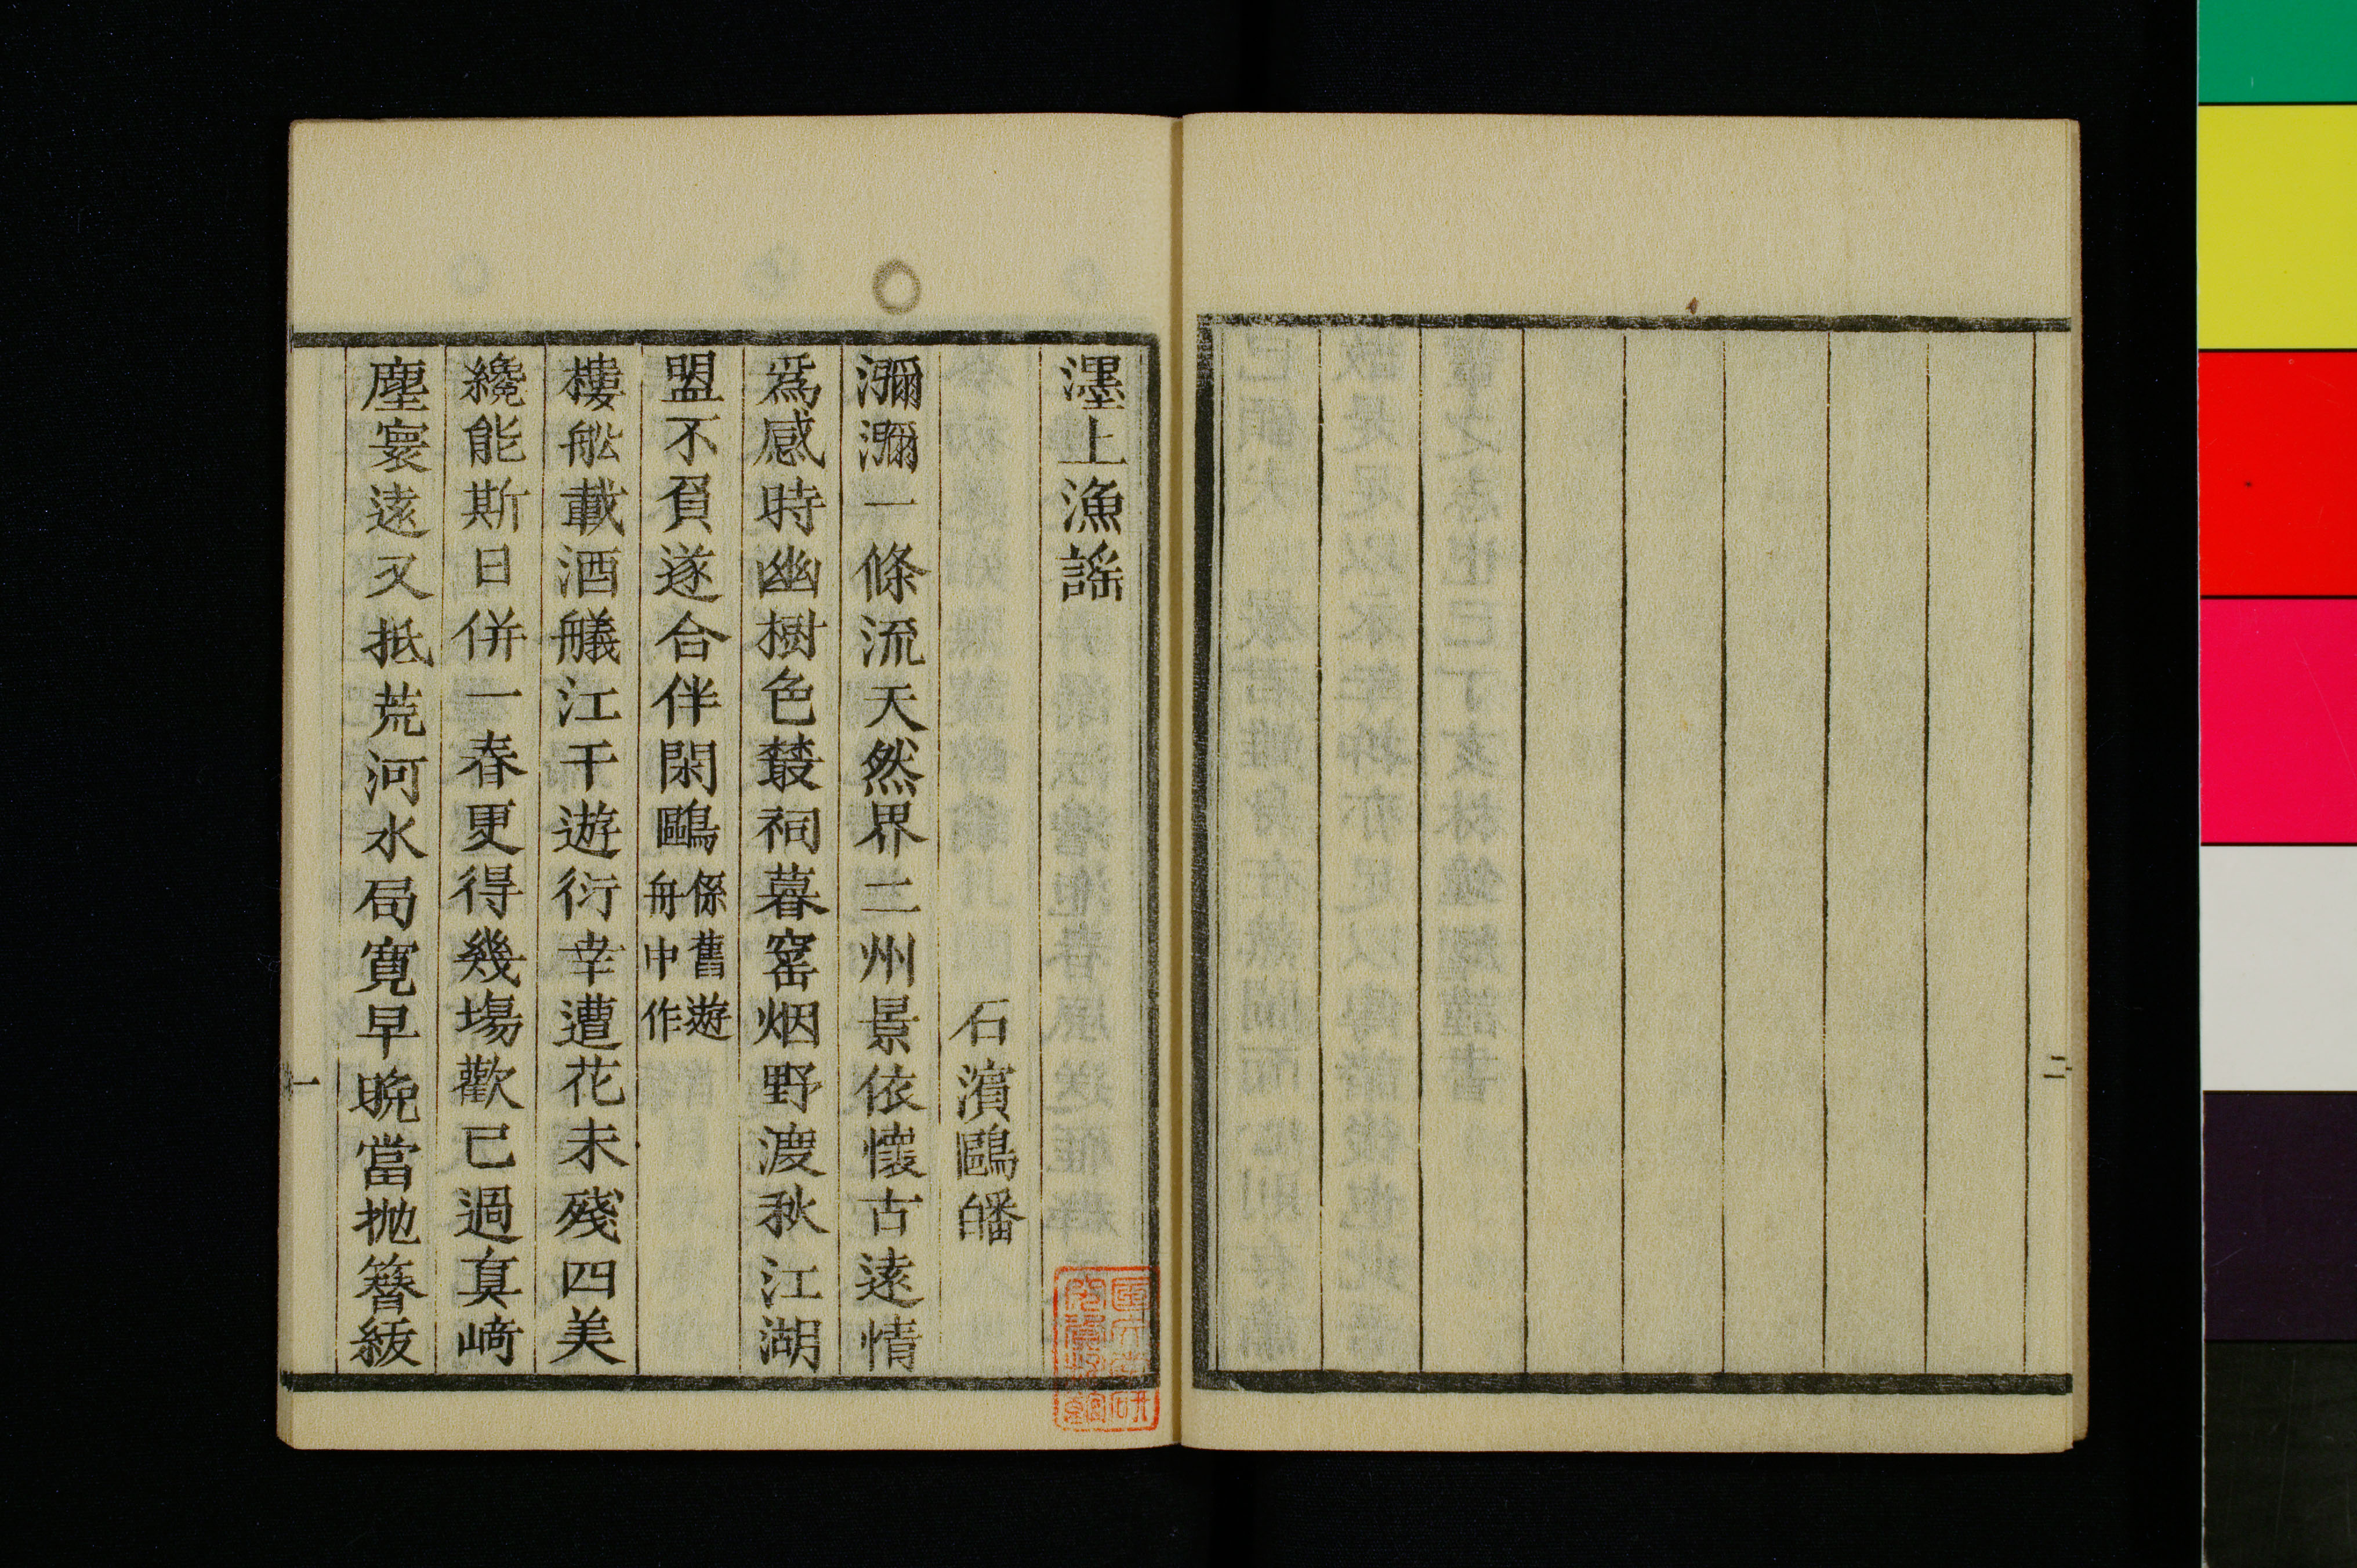 二
濹上漁謠
石濱鷗皤
瀰瀰一條流天然界二州景依懷古遠情
爲感時幽樹色叢祠暮窰烟野渡秋江湖
盟不負遂合伴閑鷗係舊遊舟中作
樓船載酒艤江干遊衍幸遭花未殘四美
纔能斯日併一春更得幾場歡已過真﨑
塵寰遠又抵荒河水局寬早晚當拋簪紱
一